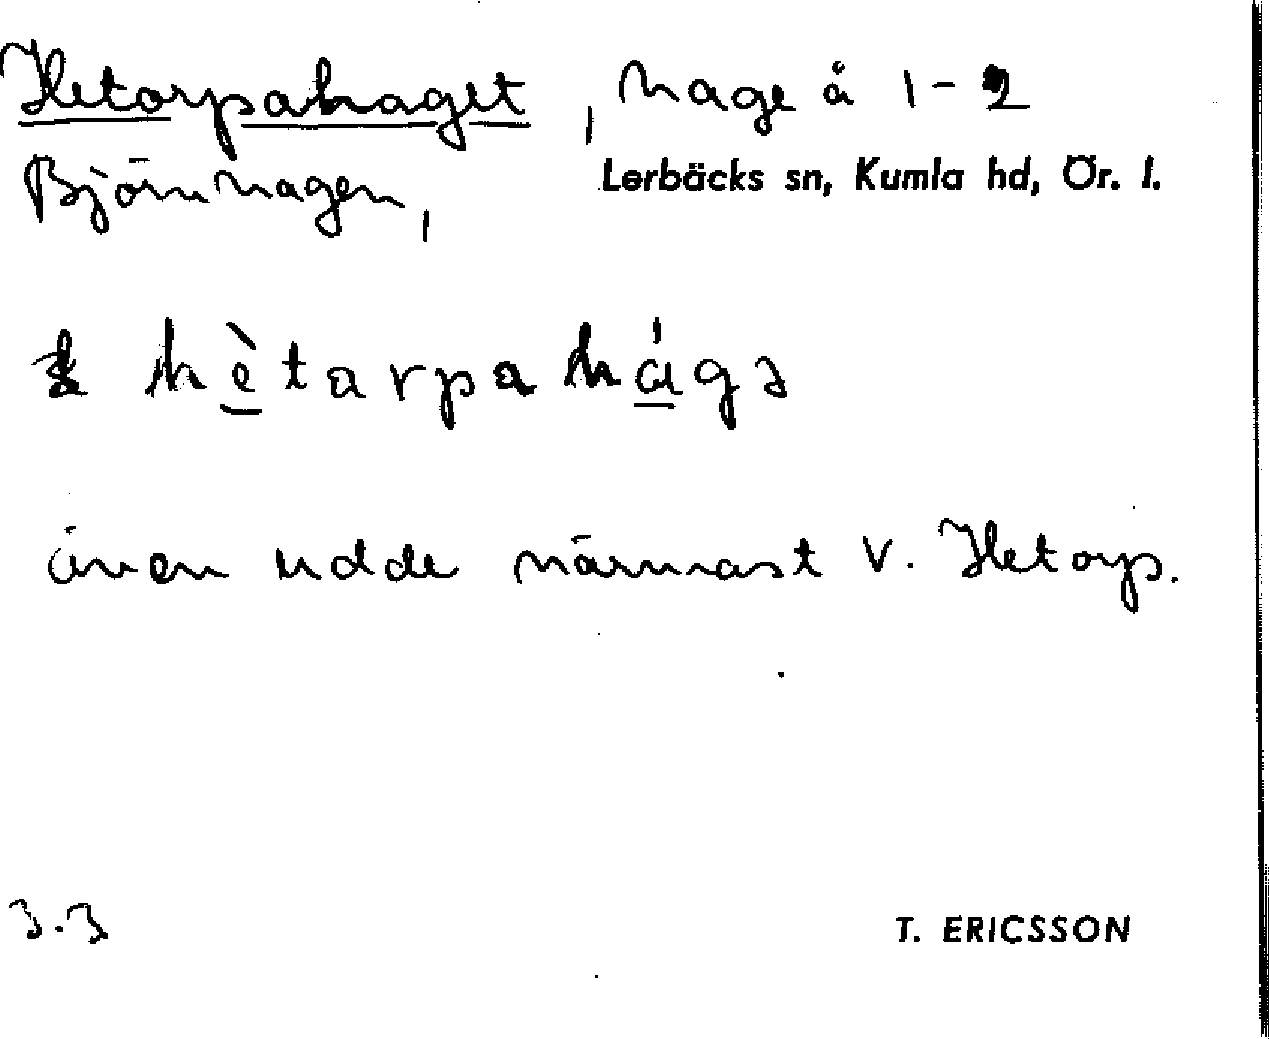 Hetorpahaget, hage å 1-2
Björnhagen, Lerbäcks sn, Kumla hd, Ör. l.
hètarpahágə
även udde närmast V. Hetorp.
3.3 T. ERICSSON